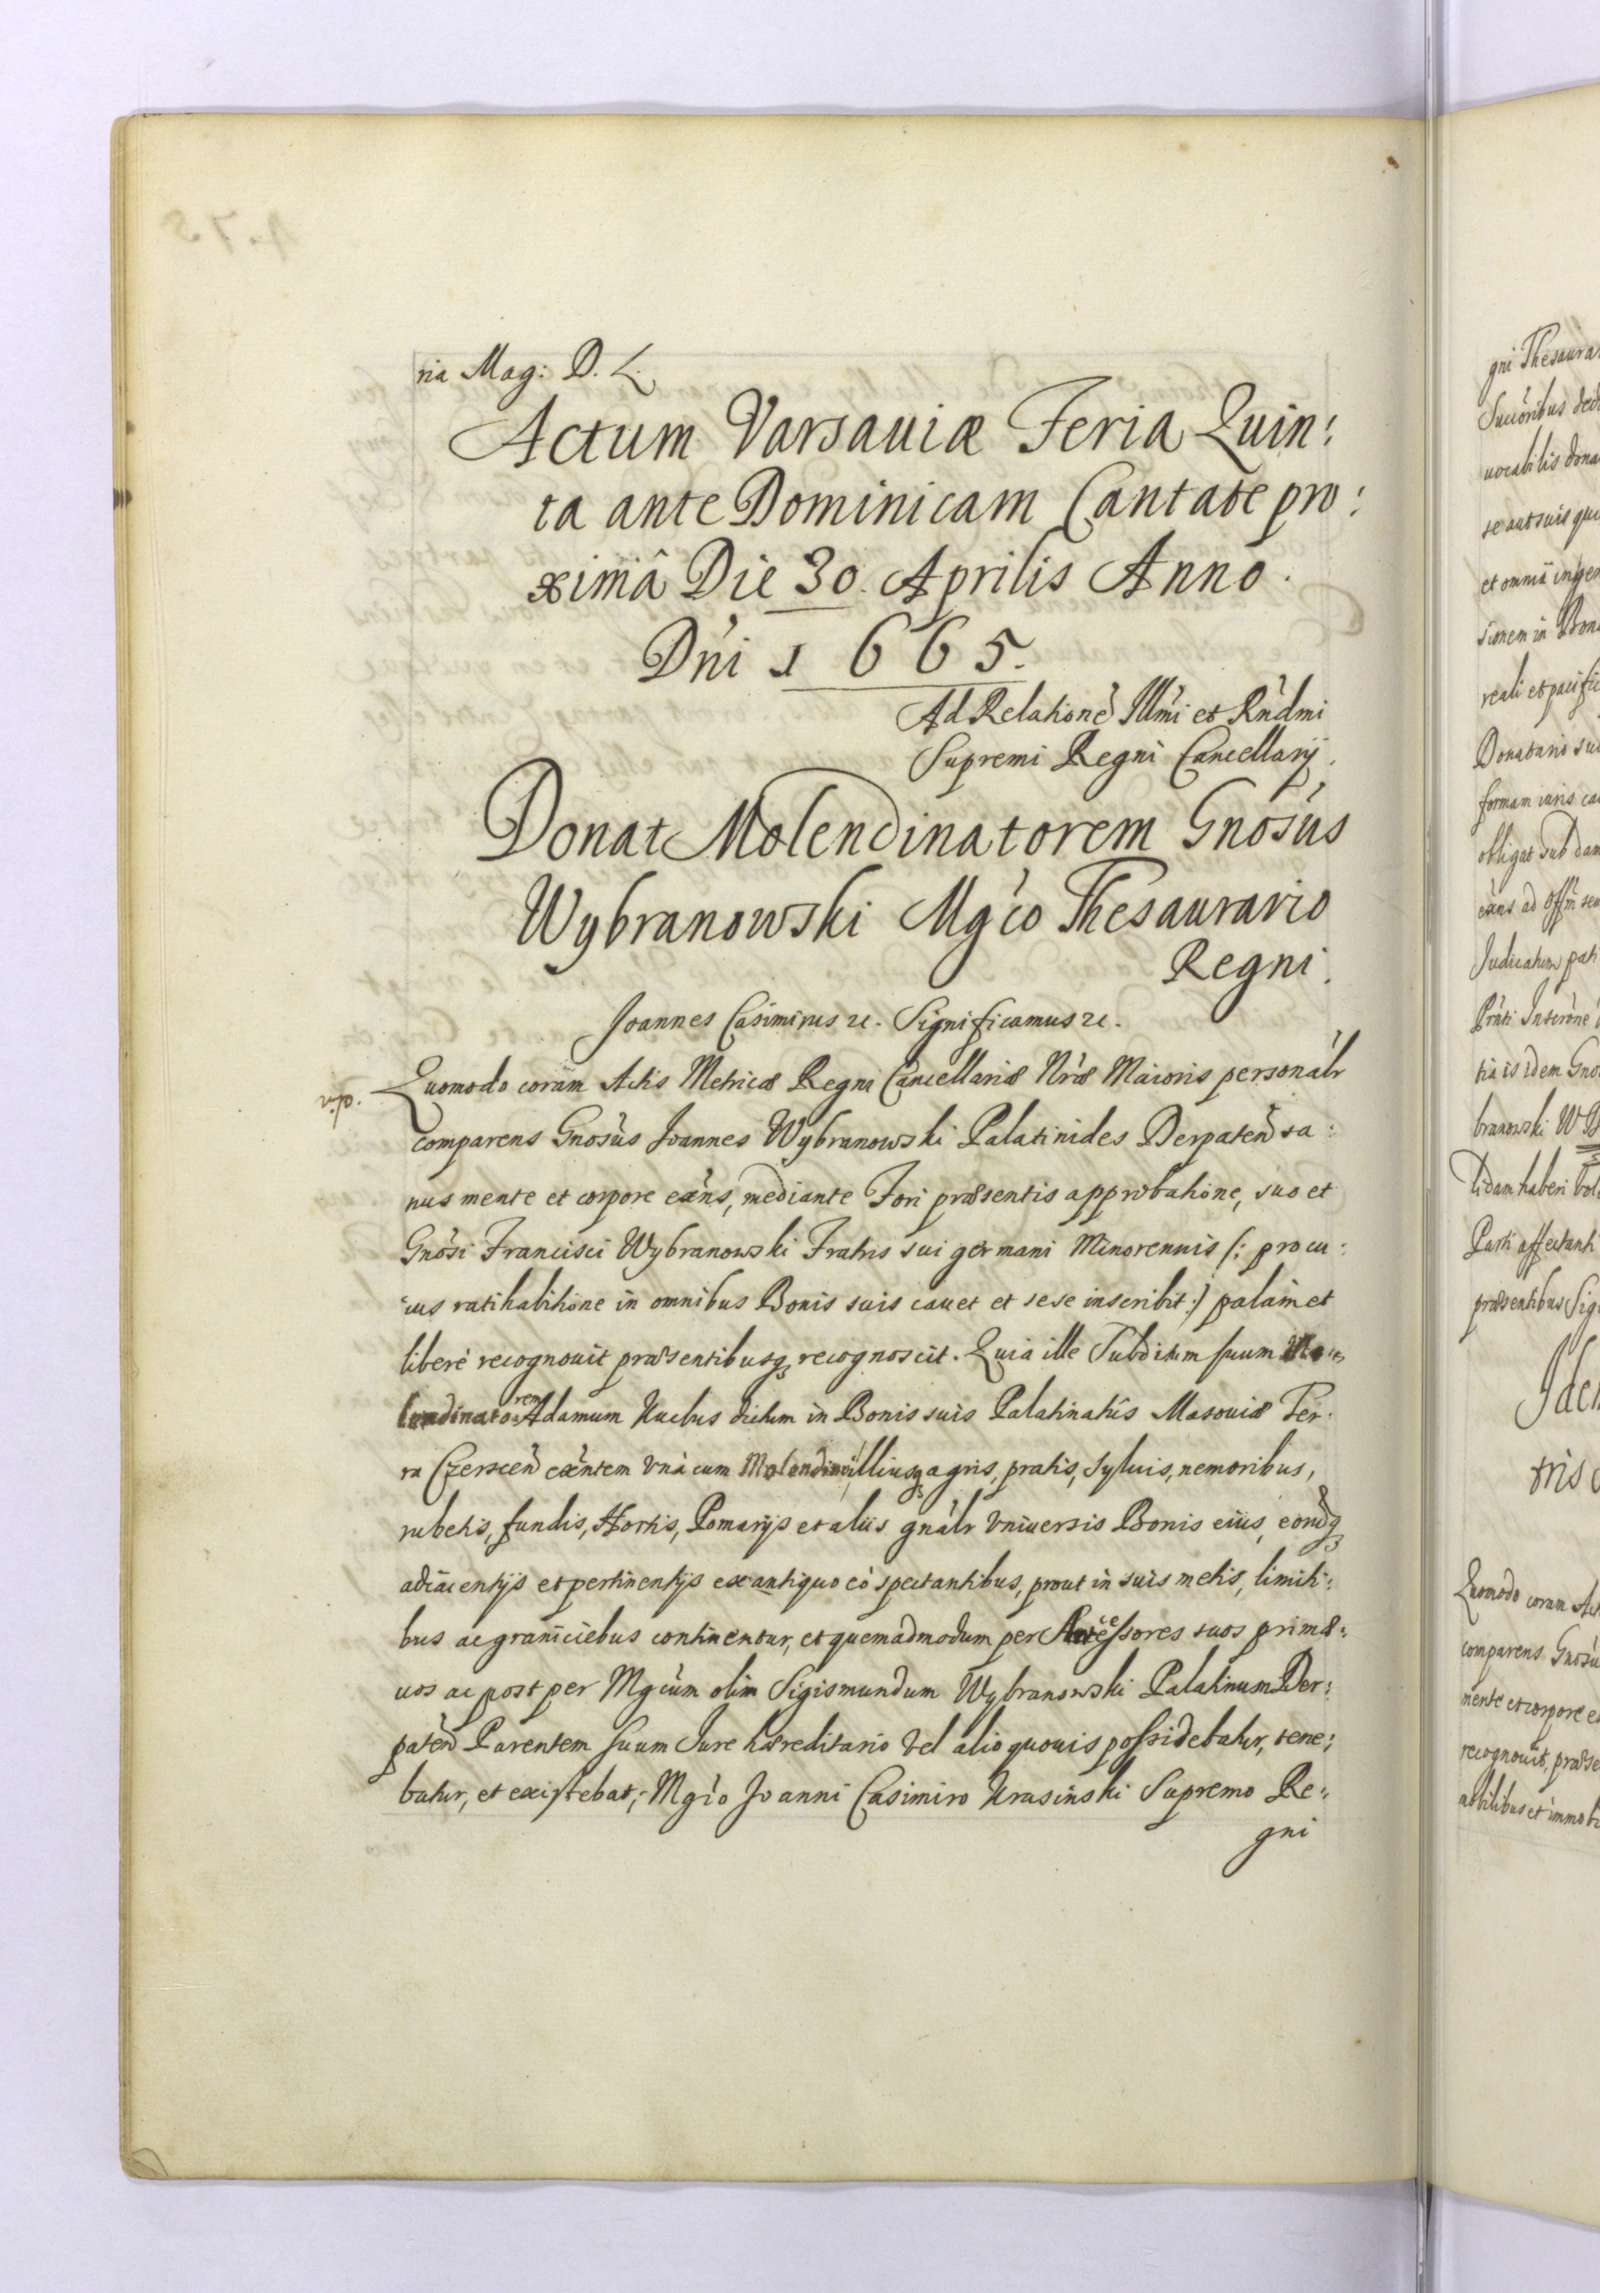 ria Mag: D. L.
Actum Varsauiæ Feria Quin:
ta ante Dominicam Cantate pro:
ximâ Die 30. Aprilis Anno
Dńi 1665.
Ad Relatione Illmi et Rndmi
Supremi Regni Cancellarij.
Donat Molendinatorem Gnosus
Wybranowski Mgco Thesaurario
Regni.
Joannes Casimirus etc. Significamus etc.
Quomodo coram Actis Metricæ Regni Cancellariæ Nræ Maioris personalr
comparens Gnosus Joannes Wybranowski Palatinides Derpaten sa:
nus mente et corpore exns, mediante Fori præsentis approbatione, suo et
Gnosi Francisci Wybranowski Fratris sui germani Minorennis /: pro cu:
ius ratihabitione in omnibus Bonis suis cauet et sese inscribit :/ palam et
liberè recognouit præsentibusq recognoscit. Quia ille Subditum suum Mo:
lendinatorem Adamum dictum in Bonis suis Palatinatûs Masouiæ Ter:
ra Czerscen exntem vnà cum Molendino, illiusq agris, pratis, syluis, nemoribus,
rubetis, fundis, Hortis, Pomarijs et aliis gnalr vniuersis Bonis eius, eorudq
adiacentijs et pertinentijs ex antiquo eò spectantibus, prout in suis metis, limiti:
bus ac graniciebus continentur, et quemadmodum per Antecessores suos primæ:
uos ac post per Mgcum olim Sigismundum Wybranowski Palatinum Der:
paten Parentem suum Jure hæreditario vel alio quouis possidebatur, tene:
batur, et existebat; Mgco Joanni Casimiro Krasinski Supremo Re:
gni
gni Thesaura
Succoribus ded
uocabilis dona
se aut suis qu
reali et pacific
Donatario su
formam iuris ca
obligat sub dam
Judicatum pati
tia is idem Gno
branowski
Parti affectanti
præsentibus Sig
Iden
tris
Quomodo coram Act
comparens Gnosu
mente et corpore e
recognouit, præse
obilibus et immob